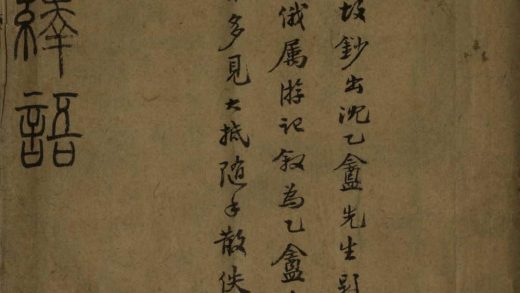 鈔出沈乙盦先生
俄属游记叙為乙盦
多見大抵随手散佚
語